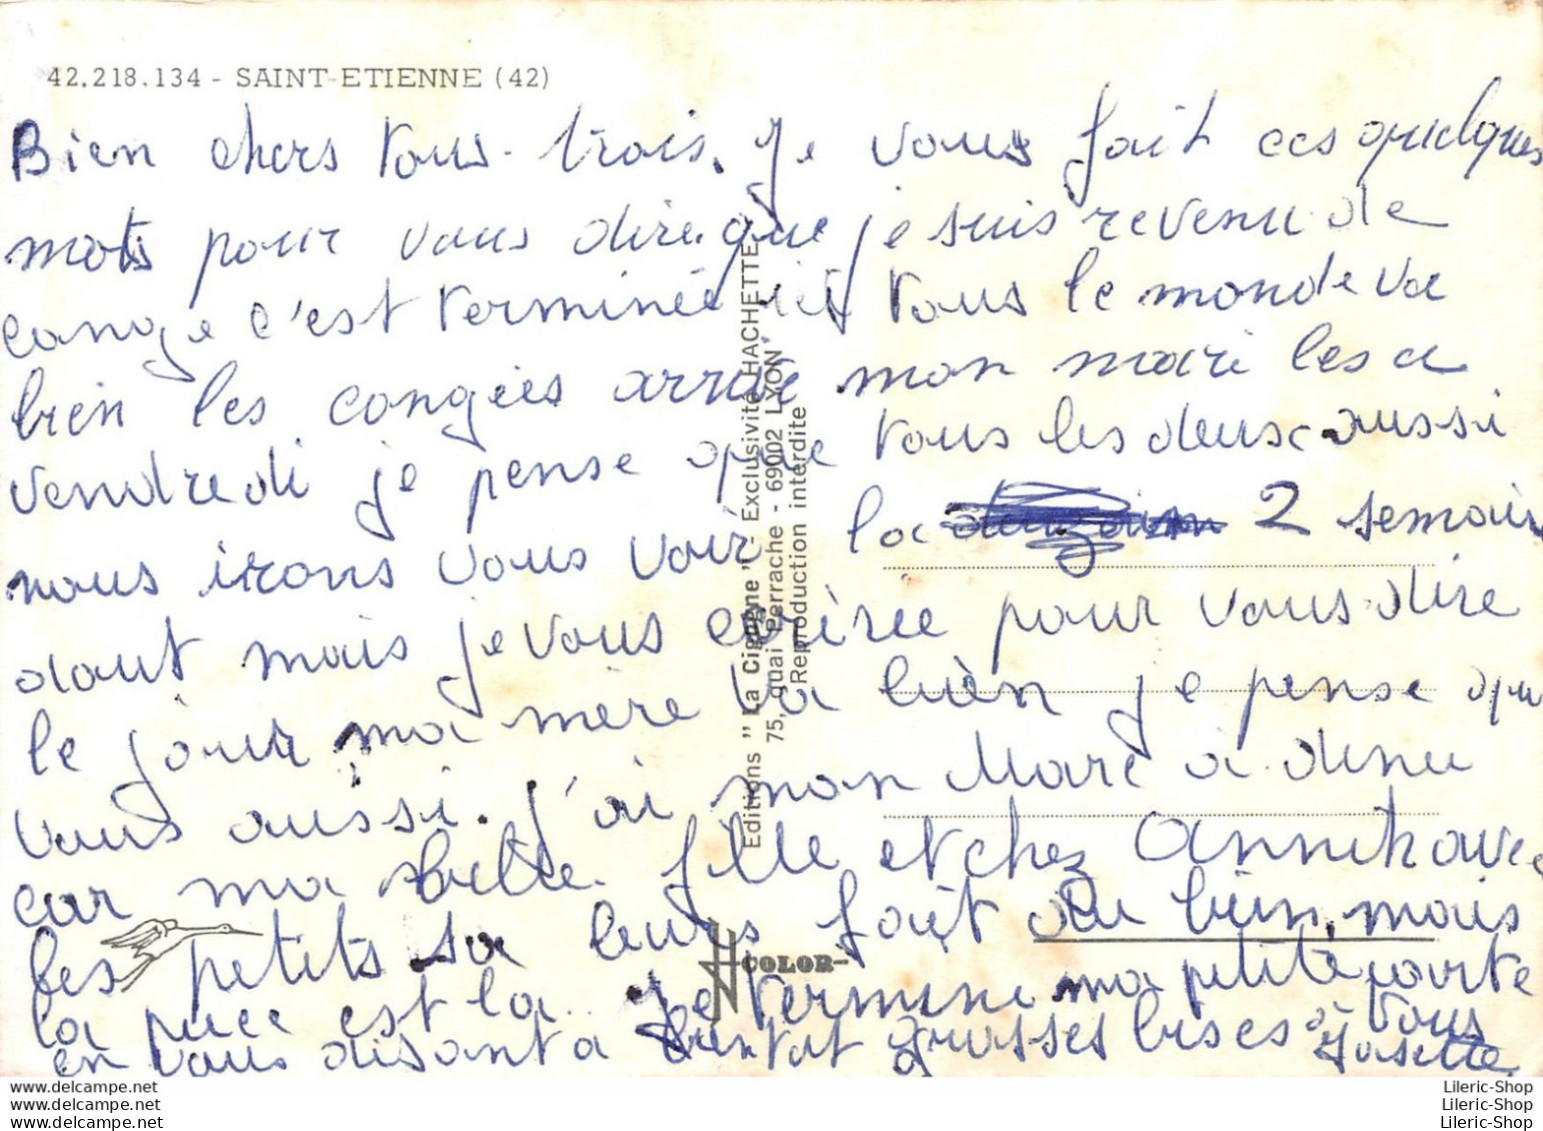 42.218.134 - SAINT-ETIENNE (42)
Bien chers tous trois. je vous fait ces quelques
mots pour vous dire que je suis revenu de
conge c'est terminée ici tous le monde va
bien les congées arrive mon mari les a
vendredi je pense que tous les deux aussi
nous irons vous voir la 2 semain
dout mais je vous ecrirée pour vous dire
le jour ma mère va bien je pense que
vous aussi. j'ai mon Marc à
car ma belle fille et chez Annik avec
les petits sa leurs fait du bien mais
la puce est la. Je termine ma petite carte
en vous disant a bientot grosses bises à vous
Josette
Editions " La Cigogne " - Exclusivité HACHETTE
75, quai Perrache - 69002 LYON
Reproduction interdite
COLOR
www.delcampe.net Lileric-Shop
www.delcampe.net Lileric-Shop
www.delcampe.net Lileric-Shop